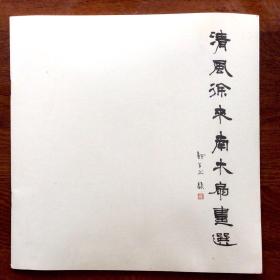 清風徐來南木扇畫選